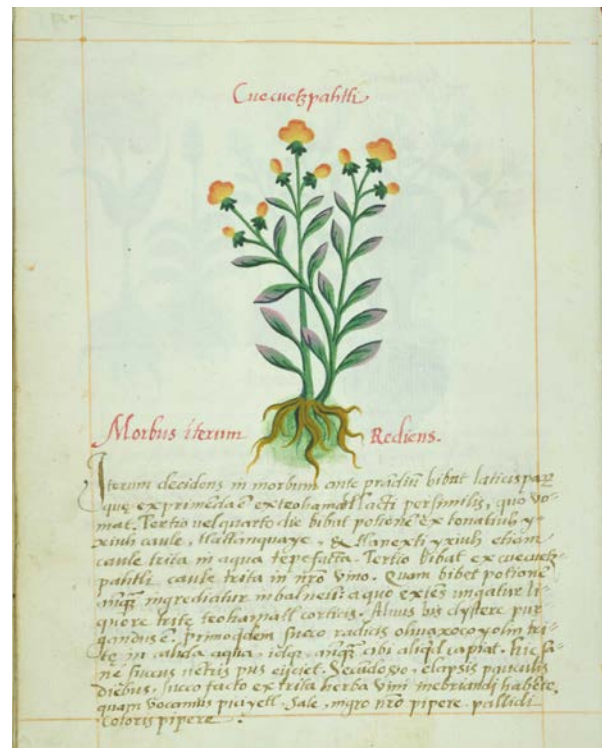 Cuecuetzpahtli
Morbus iterum Rediens.
Iterum decidens in morbum ante prãdiũ bibat laticis par
que exprimẽda ẽ ex lacti persimilis, quo vo-
mat. Tertio uel quarto die bibat potionẽ ex tonatiuh y-
xiuh caule, tlatlanquaye, & tlanexti yxiuh etiam
caule trita in aqua tepefacta. Tertio bibat ex cuecuetz-
pahtli caule trita in nr̃o vino. Quam bibet potionẽ
ingrediatur in balneũ: a quo exiẽs ungatur li-
quore trite teoham̃atl corticis. Aluus bis clystere pur
gandus ẽ, primo qdem succo radicis ohuaxocoyolin tri-
te in calida aqua, cibi aliqd capiat. Hic sa-
ne succus uẽtris pus eijciet. Secũdo elapsis pauculis
diebus, succo facto ex trita herba vim inebriandi habẽte,
quam vocamus picyetl. Sale, nigro nr̃o pipere, pallidi
coloris pipere.